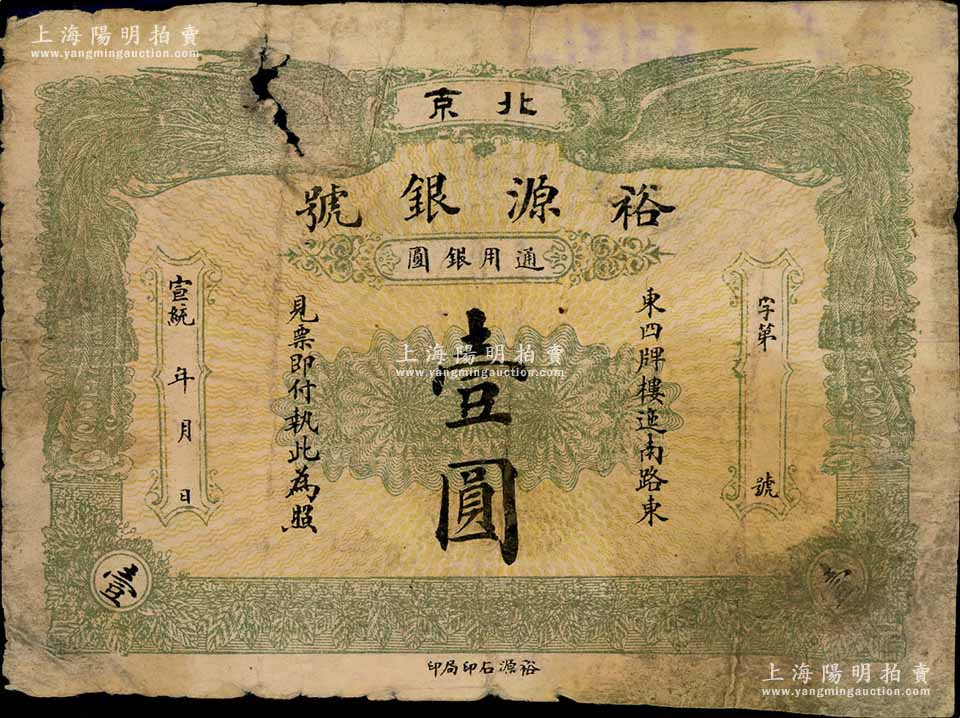 上海陽明拍賣
www.yangmingauction.com
北京
裕源銀號
通用銀圓
字第 號
東四牌樓迤南路東
壹圓
見票即付執此為照
宣統 年 月 日
壹
裕源石印局印
上海陽明拍賣
www.yangmingauction.com
上海陽明拍賣
www.yangmingauction.com